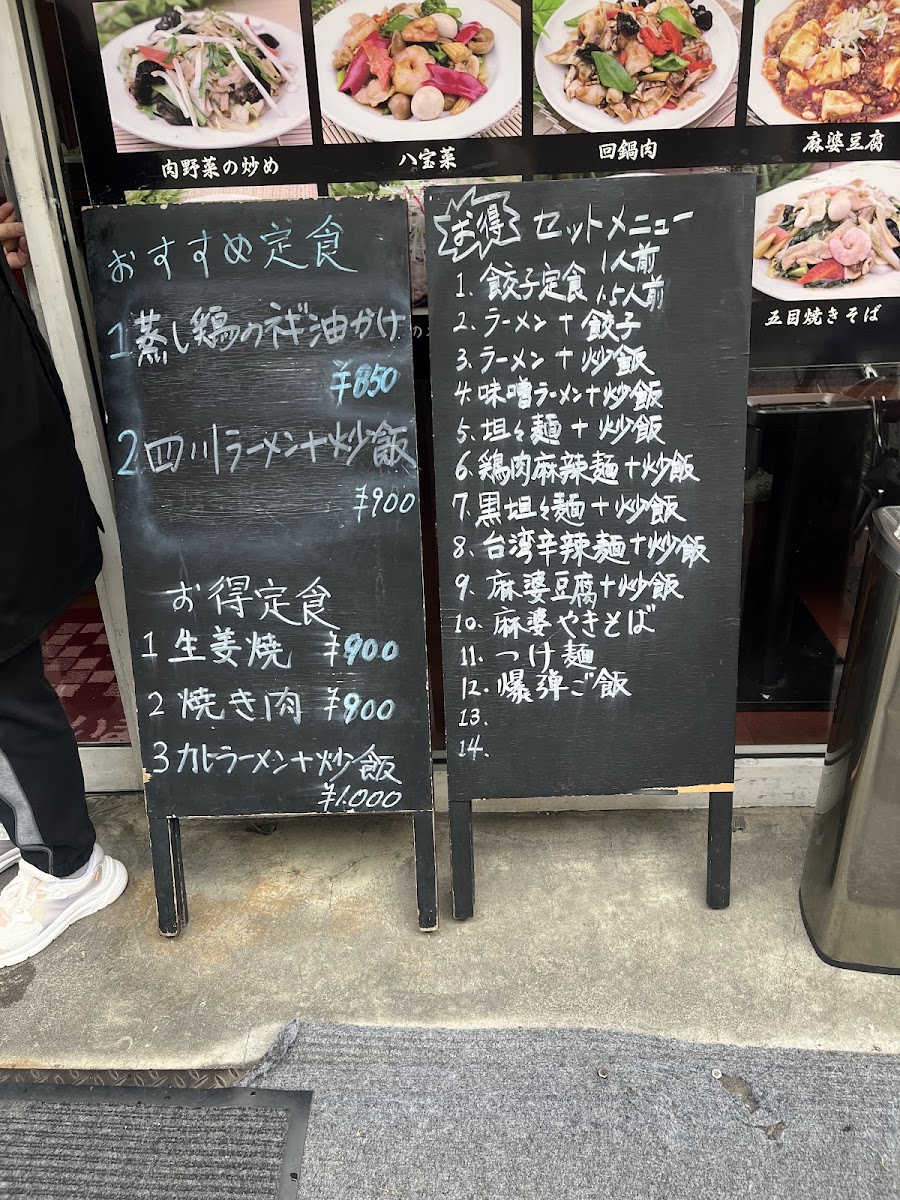 肉野菜の炒め
八宝菜
回鍋肉
麻婆豆腐
五目焼きそば
おすすめ定食
1 蒸し鶏のネギ油かけ
¥850
2 四川ラーメン+炒飯
¥900
お得定食
1 生姜焼 ¥900
2 焼き肉 ¥900
3 カルトラーメン+炒飯
¥1.000
お得 セットメニュー
1. 餃子定食 1人前 1.5人前
2. ラーメン+餃子
3. ラーメン+炒飯
4. 味噌ラーメン+炒飯
5. 坦々麺+炒飯
6. 鶏肉麻辣麺+炒飯
7. 黒坦々麺+炒飯
8. 台湾辛辣麺+炒飯
9. 麻婆豆腐+炒飯
10. 麻婆やきそば
11. つけ麺
12. 爆弾ご飯
13.
14.